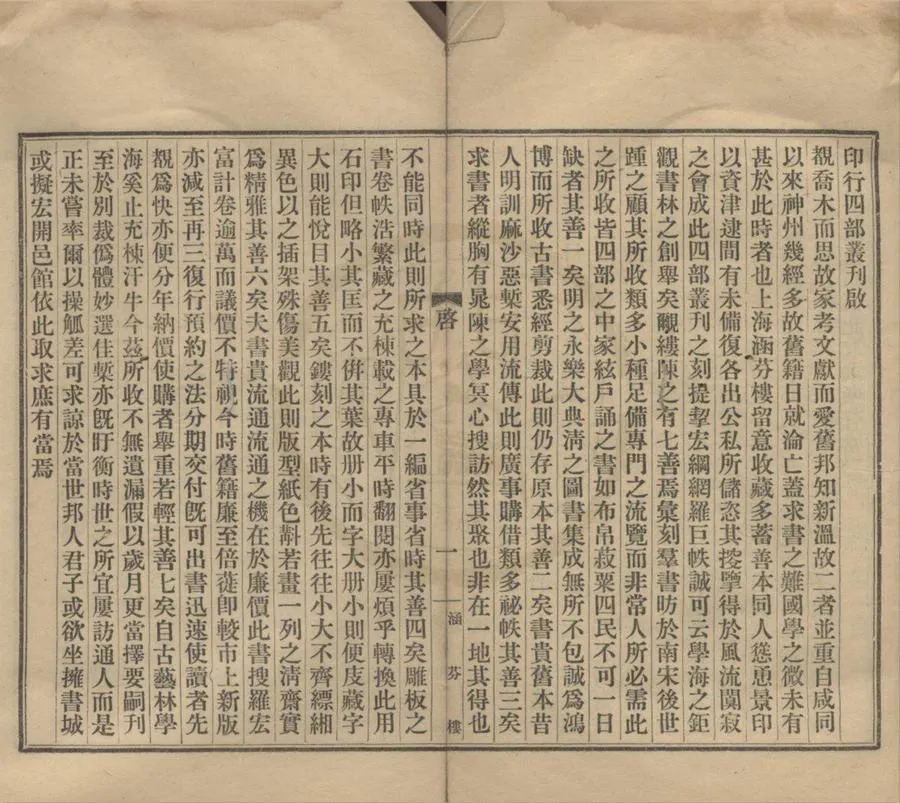 印行四部叢刊啟
覩喬木而思故家考文獻而愛舊邦知新溫故二者並重自咸同
以來神州幾經多故舊籍日就淪亡蓋求書之難國學之微未有
甚於此時者也上海涵芬樓留意收藏多蓄善本同人慫恿景印
以資津逮間有未備復各出公私所儲恣其搜擥得於風流闃寂
之會成此四部叢刊之刻提挈宏綱網羅巨帙誠可云學海之鉅
觀書林之創舉矣覼縷陳之有七善焉彙刻羣書昉於南宋後世
踵之顧其所收類多小種足備專門之流覽而非常人所必需此
之所收皆四部之中家絃戶誦之書如布帛菽粟四民不可一日
缺者其善一矣明之永樂大典淸之圖書集成無所不包誠爲鴻
博而所收古書悉經剪裁此則仍存原本其善二矣書貴舊本昔
人明訓麻沙惡槧安用流傳此則廣事購借類多祕帙其善三矣
求書者縱胸有晁陳之學冥心搜訪然其聚也非在一地其得也
啓
一
涵芬樓
不能同時此則所求之本具於一編省事省時其善四矣雕板之
書卷帙浩繁藏之充棟載之專車平時翻閱亦屢煩乎轉換此用
石印但略小其匡而不倂其葉故册小而字大册小則便庋藏字
大則能悅目其善五矣鏤刻之本時有後先往往小大不齊縹緗
異色以之插架殊傷美觀此則版型紙色斠若畫一列之淸齋實
爲精雅其善六矣夫書貴流通流通之機在於廉價此書搜羅宏
富計卷逾萬而議價不特視今時舊籍廉至倍蓰卽較市上新版
亦減至再三復行預約之法分期交付旣可出書迅速使讀者先
覩爲快亦便分年納價使購者舉重若輕其善七矣自古藝林學
海奚止充棟汗牛今茲所收不無遺漏假以歲月更當擇要嗣刊
至於別裁僞體妙選佳槧亦旣盱衡時世之所宜屢訪通人而是
正未嘗率爾以操觚差可求諒於當世邦人君子或欲坐擁書城
或擬宏開邑館依此取求庶有當焉